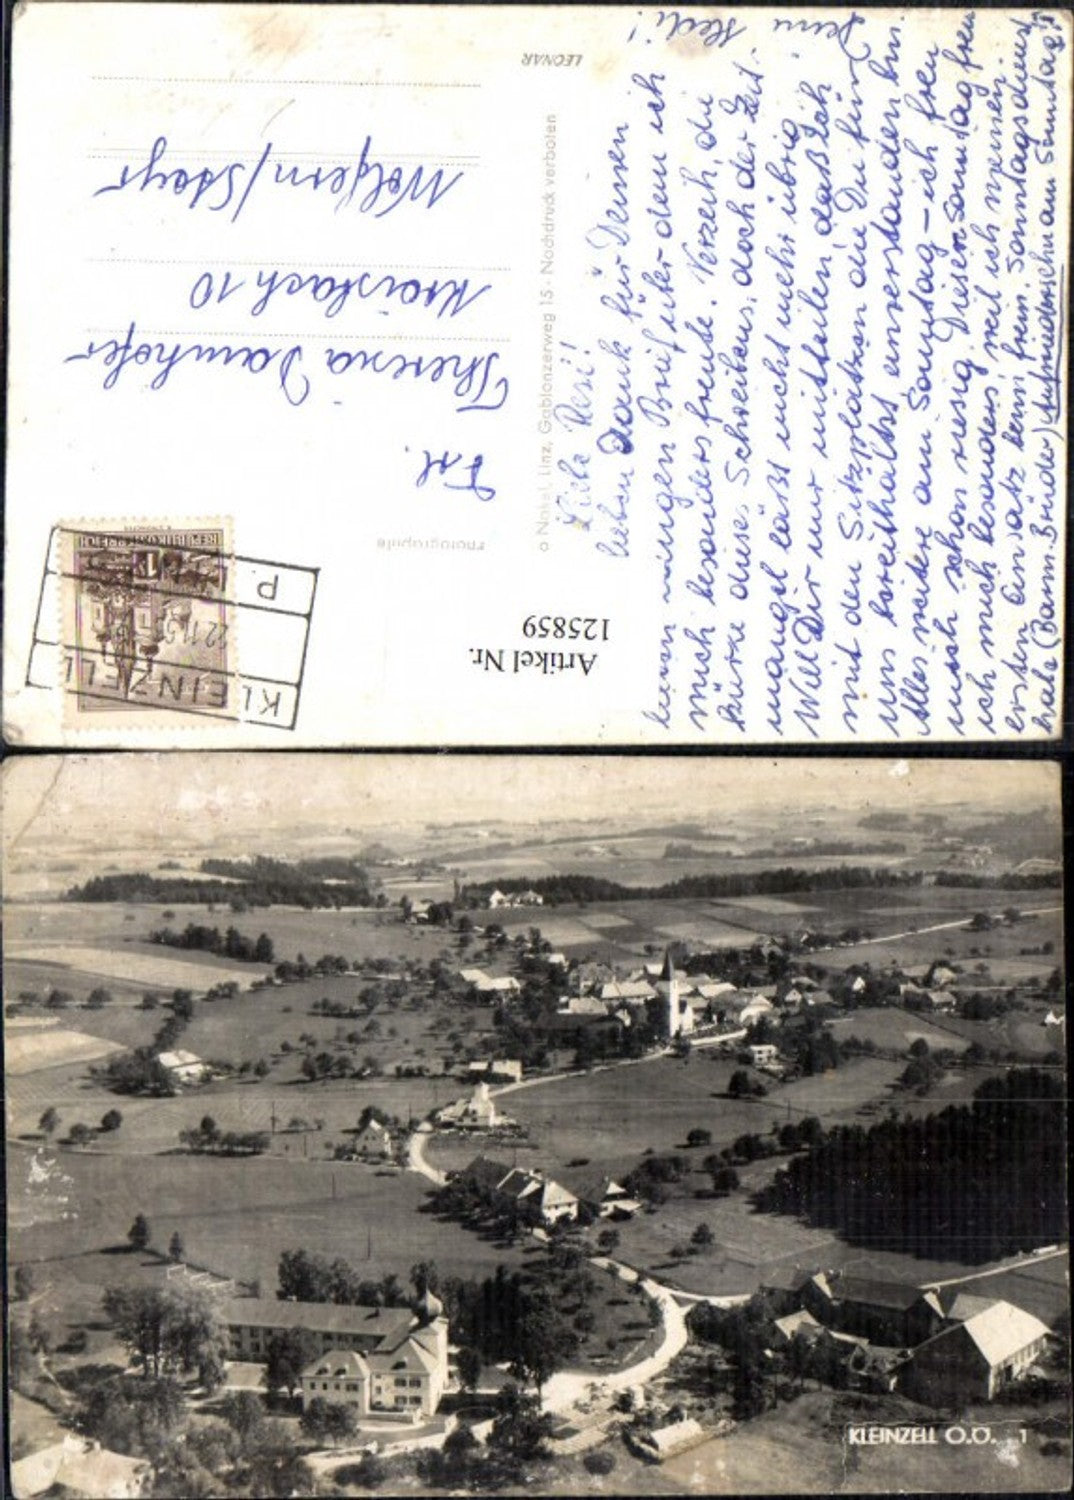 LEONAR
Wolfern/Steyr
Kroisbach 10
Theresa Damhofer
Frl.
Photographie
REPUBLIK ÖSTERREICH
1
KLEINZELL
P.
Artikel Nr.
125859
o Nakel, Linz, Gablonzerweg 15 · Nachdruck verboten
Liebe Resi!
lieben Dank für Deinen
Brief über dem ich
mich besonders freute. Verzeih, die
Kürze dieses Schreibens, doch der Zeit-
mangel läßt nicht mehr übrig.
Will Dir nur mitteilen, daß ich
mit den Sitzplätzen die Du für
uns bereithältst einverstanden bin.
Alles weitere am Sonntag - ich freu
mich schon riesig. Diesen Sonntag freu
ich mich besonders, weil ich meinen
ersten Einsatz beim freiw. Sonntagsdienst
habe (Barm. Brüder) Aufwiederschn am Sonntag!!
Deine Hedi!
KLEINZELL O.Ö. 1